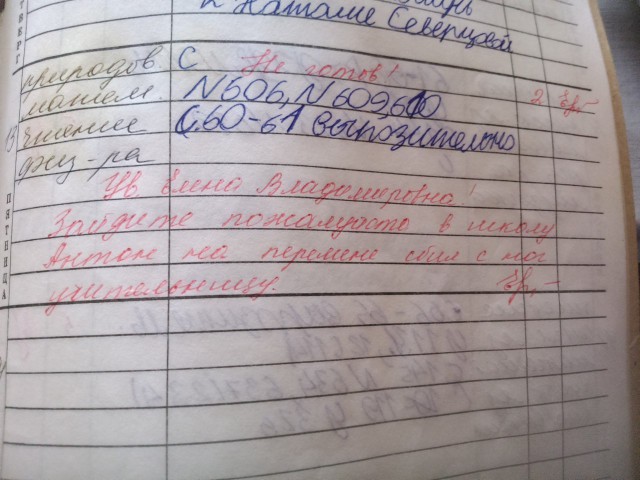 к Наташе Северцовой
ЧЕТВЕРГ
природов. С Не готов!
матем. N606, N609,610 2
чтение С.60-61 выразительно
физ-ра
ПЯТНИЦА
Ув. Елена Владимировна!
Зайдите пожалуйста в школу
Антон на перемене сбил с ног
учительницу.